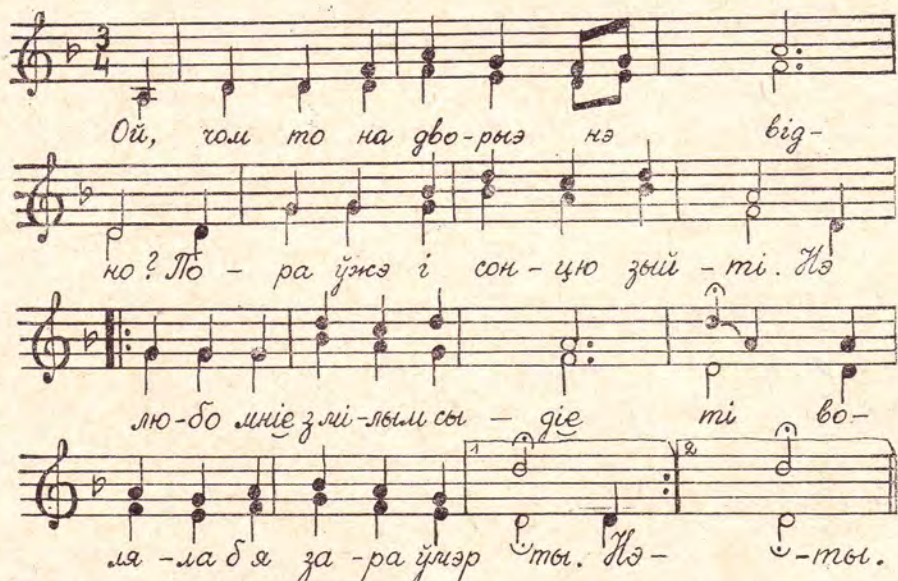 3 4
Ой, чом то на дво-рыэ нэ від-
но? По - ра ўжэ і сон-цю зый-ті. Нэ
лю-бо мніе з мі-лым сы - діе ті во-
1 2
ля-ла б я за-ра ўмэр ты. Нэ- -ты.